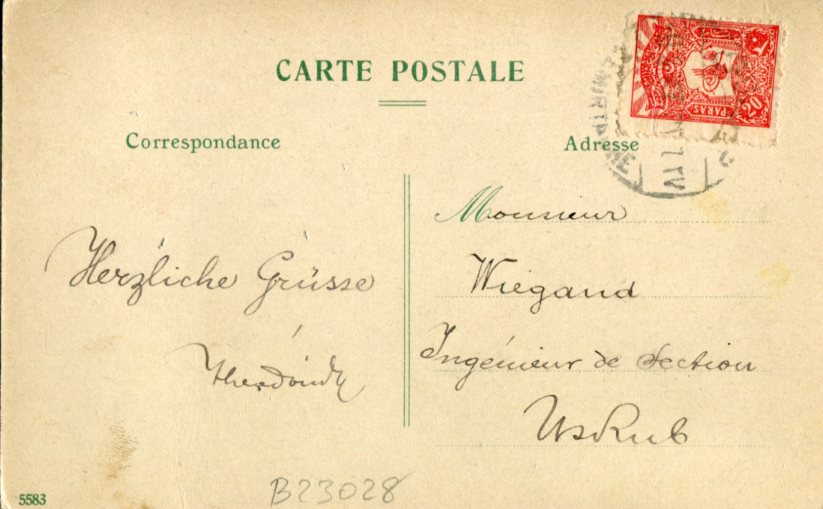 CARTE POSTALE
Correspondance
Adresse
20
PARAS
Monsieur
Wiegand
Ingénieur de Section
Uskub
Herzliche Grüsse
B23028
5583